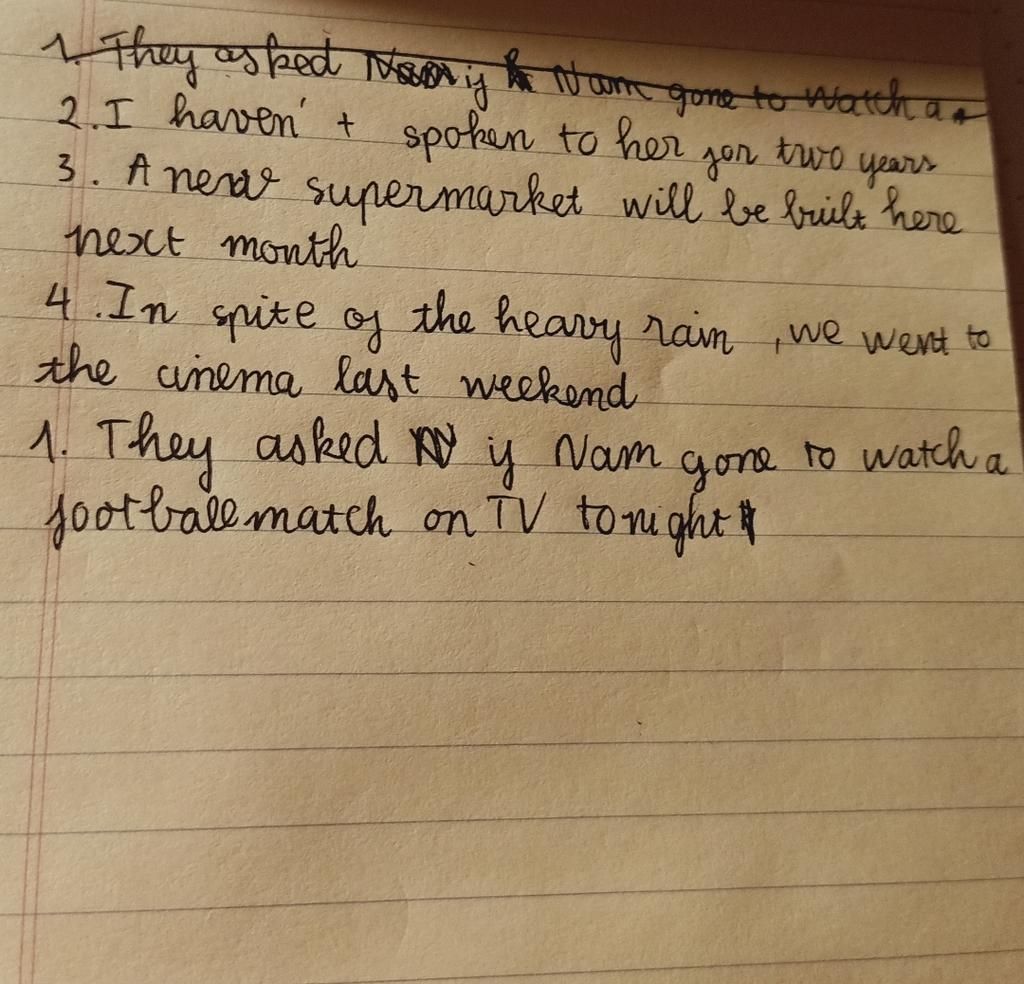 1. They asked if Nam gone to watch a
2. I haven't spoken to her for two years
3. A new supermarket will be built here
next month
4. In spite of the heavy rain, we went to
the cinema last weekend
1. They asked if Nam gone to watch a
football match on TV tonight